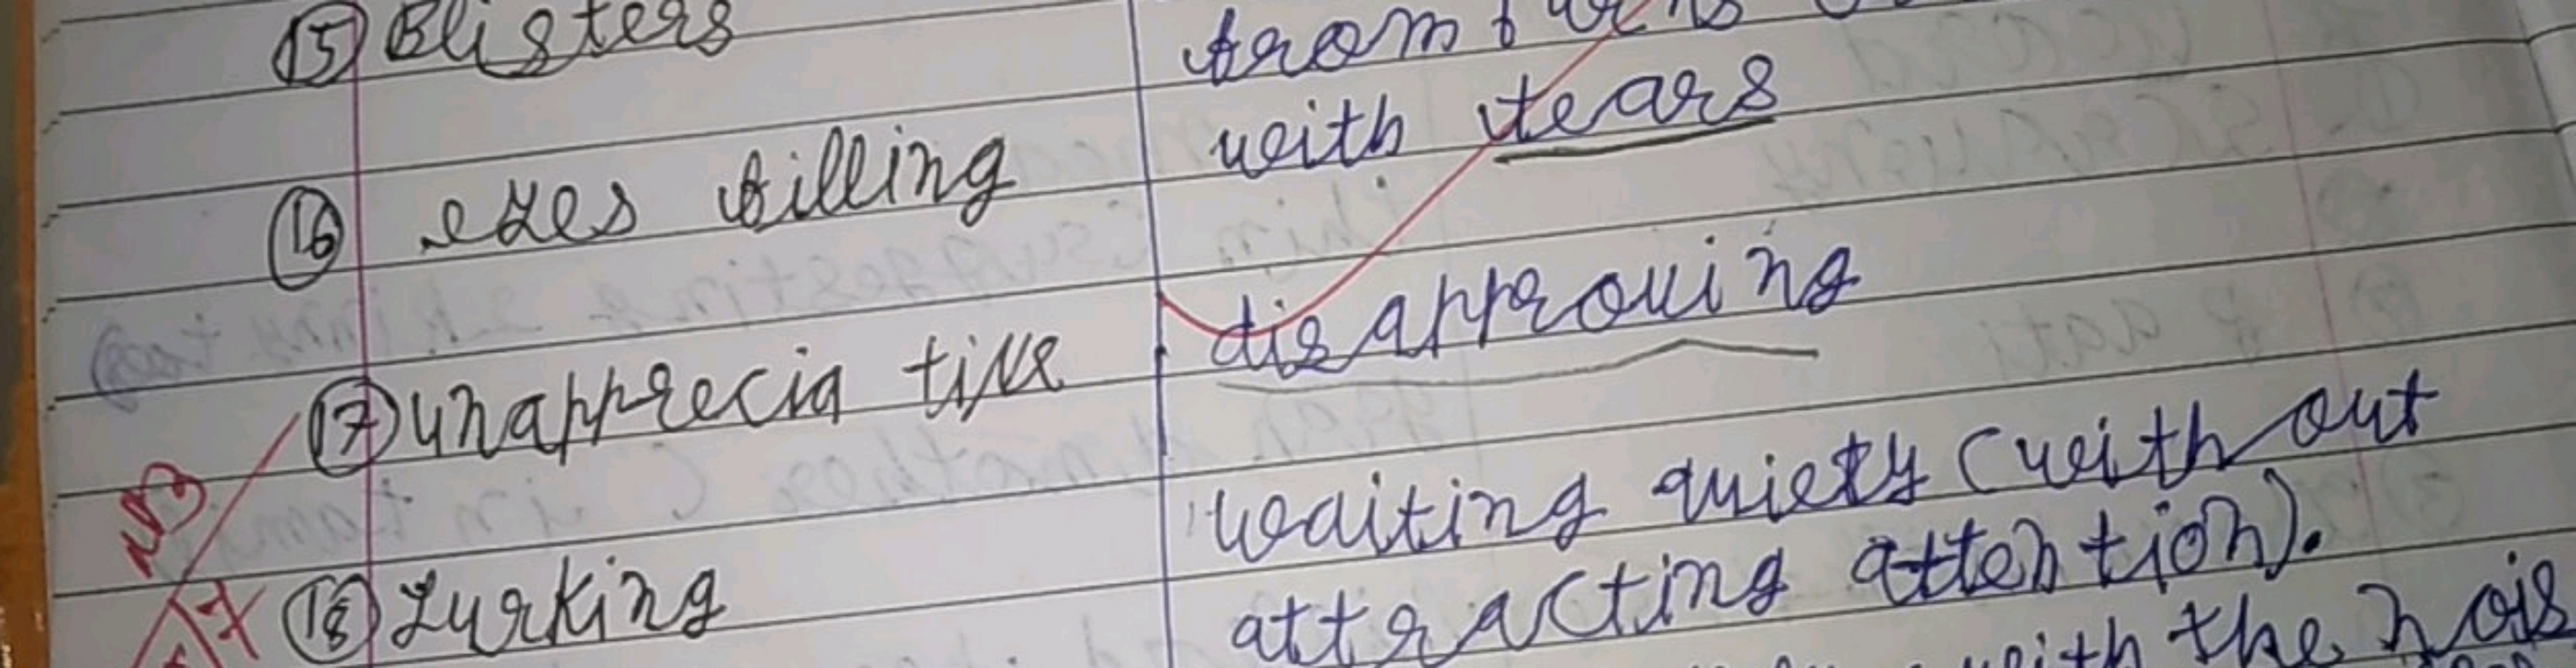 15 Blisters
from burns
with tears
16 eyes filling
disapproving
17 unapprecia tive
waiting quiety (with out
18 Lurking
attracting attention).
with the nois